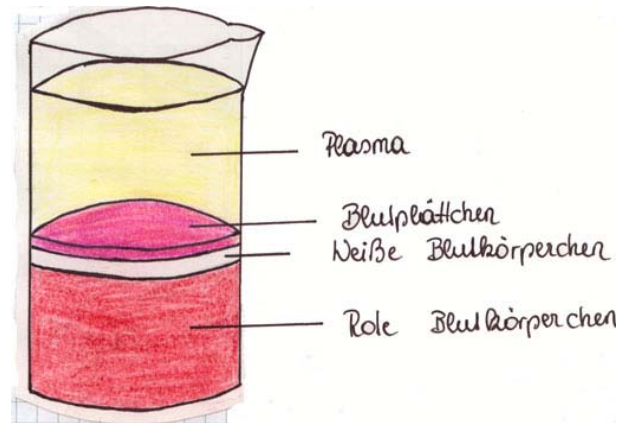 Plasma
Blutplättchen
Weiße Blutkörperchen
Rote Blutkörperchen